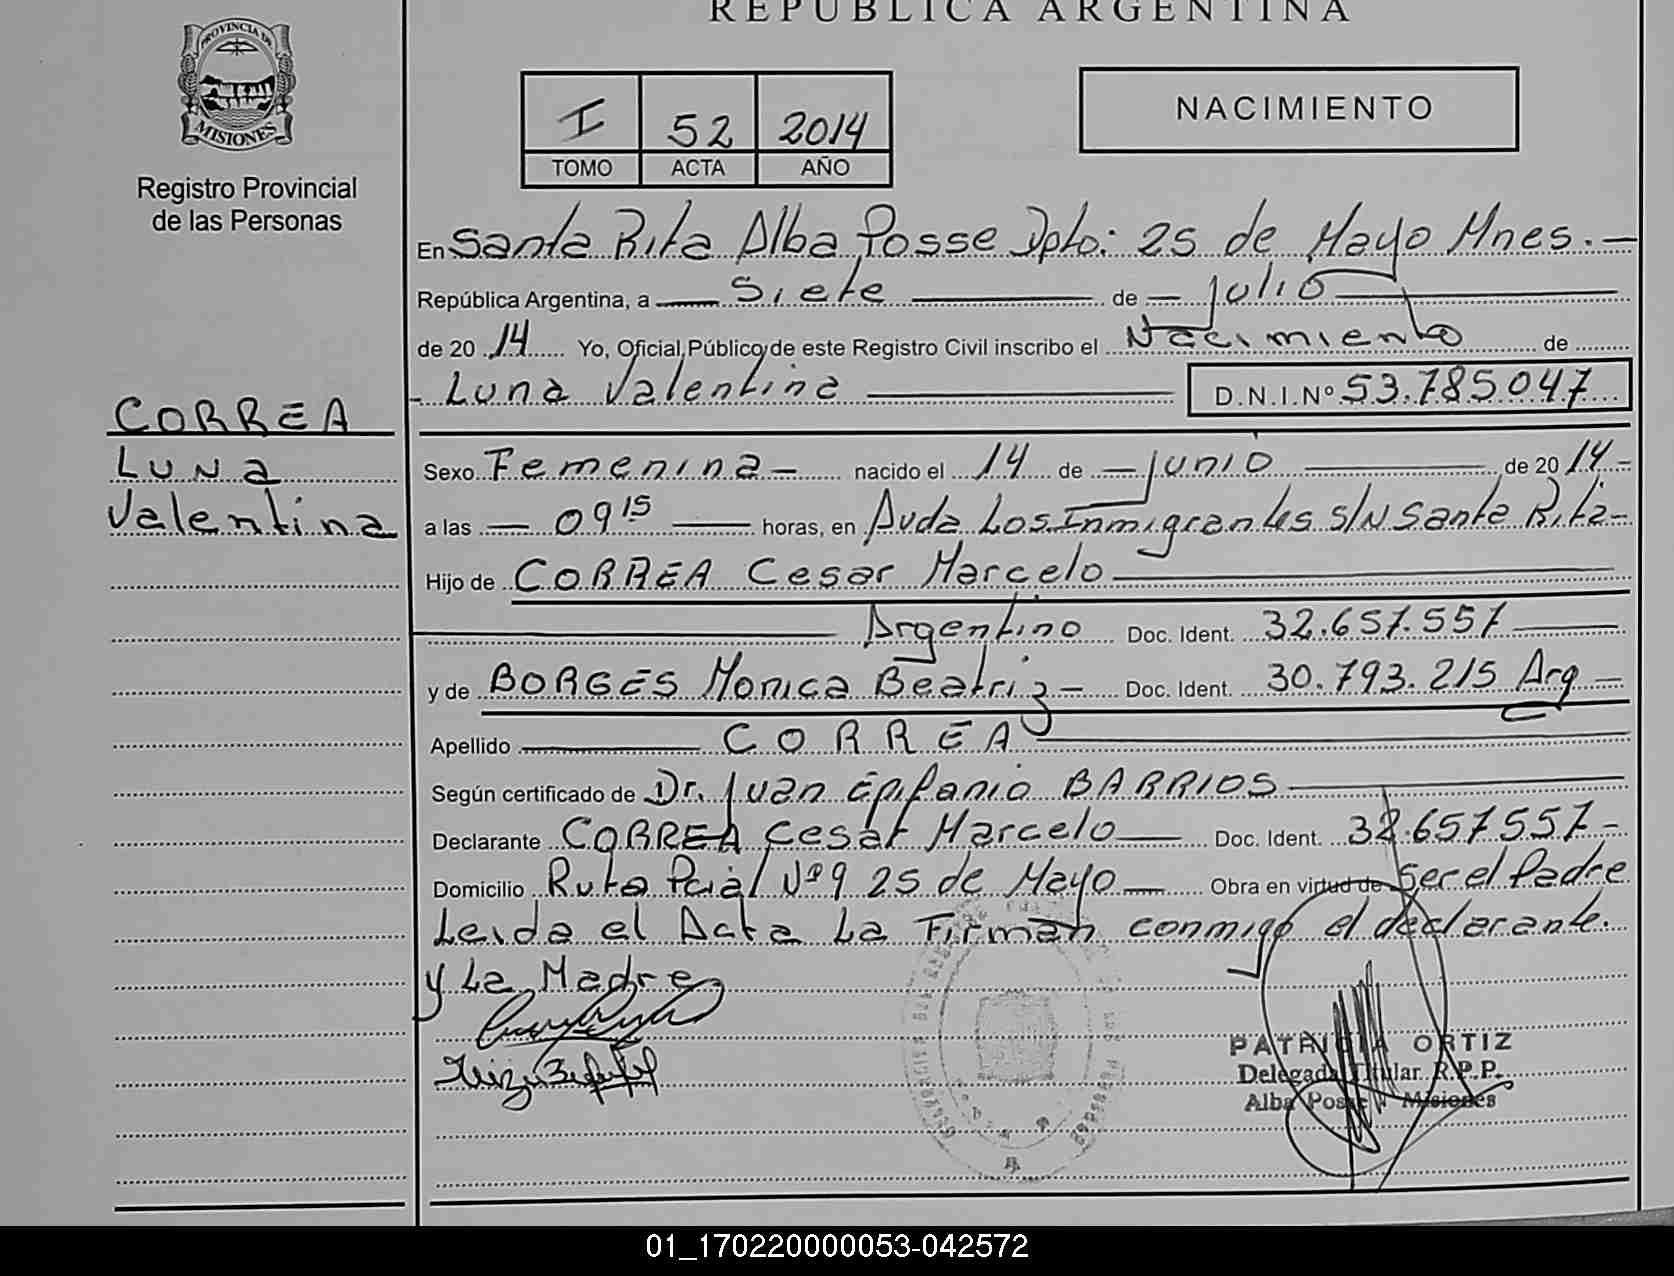 REPÚBLICA ARGENTINA
PROVINCIA DE
MISIONES
Registro Provincial
de las Personas
I 52 2014
TOMO ACTA AÑO
NACIMIENTO
En Santa Rita Alba Posse Dpto: 25 de Mayo Mnes.
República Argentina, a Siete de julio
de 2014 Yo, Oficial Público de este Registro Civil inscribo el Nacimiento de
Luna Valentina D.N.I.Nº 53.785.047
CORREA
Luna
Valentina
Sexo Femenina nacido el 14 de junio de 2014
a las 09 15 horas, en Avda Los Inmigrantes s/N Santa Rita
Hijo de CORREA Cesar Marcelo
Argentino Doc. Ident. 32.657.557
y de BORGES Monica Beatriz Doc. Ident. 30.793.215 Arg
Apellido CORREA
Según certificado de Dr. Juan Epifanio BARRIOS
Declarante CORREA Cesar Marcelo Doc. Ident. 32.657.557
Domicilio Ruta Pcial Nº 9 25 de Mayo Obra en virtud de Ser el Padre
Leida el Acta La Firman conmigo el declarante.
y La Madre
PATRICIA ORTIZ
Delegada Titular R.P.P.
Alba Posse Misiones
01_170220000053-042572